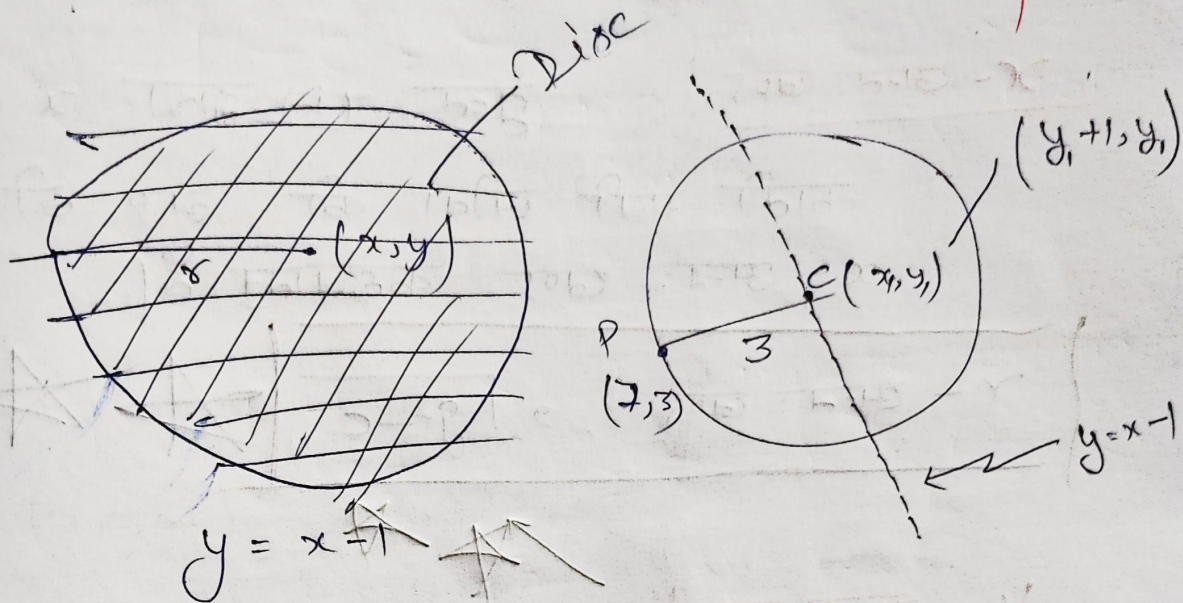 Disc
(x, y)
r
y = x - 1
(y₁ + 1, y₁)
C (x₁, y₁)
P
3
(7, 3)
y = x - 1